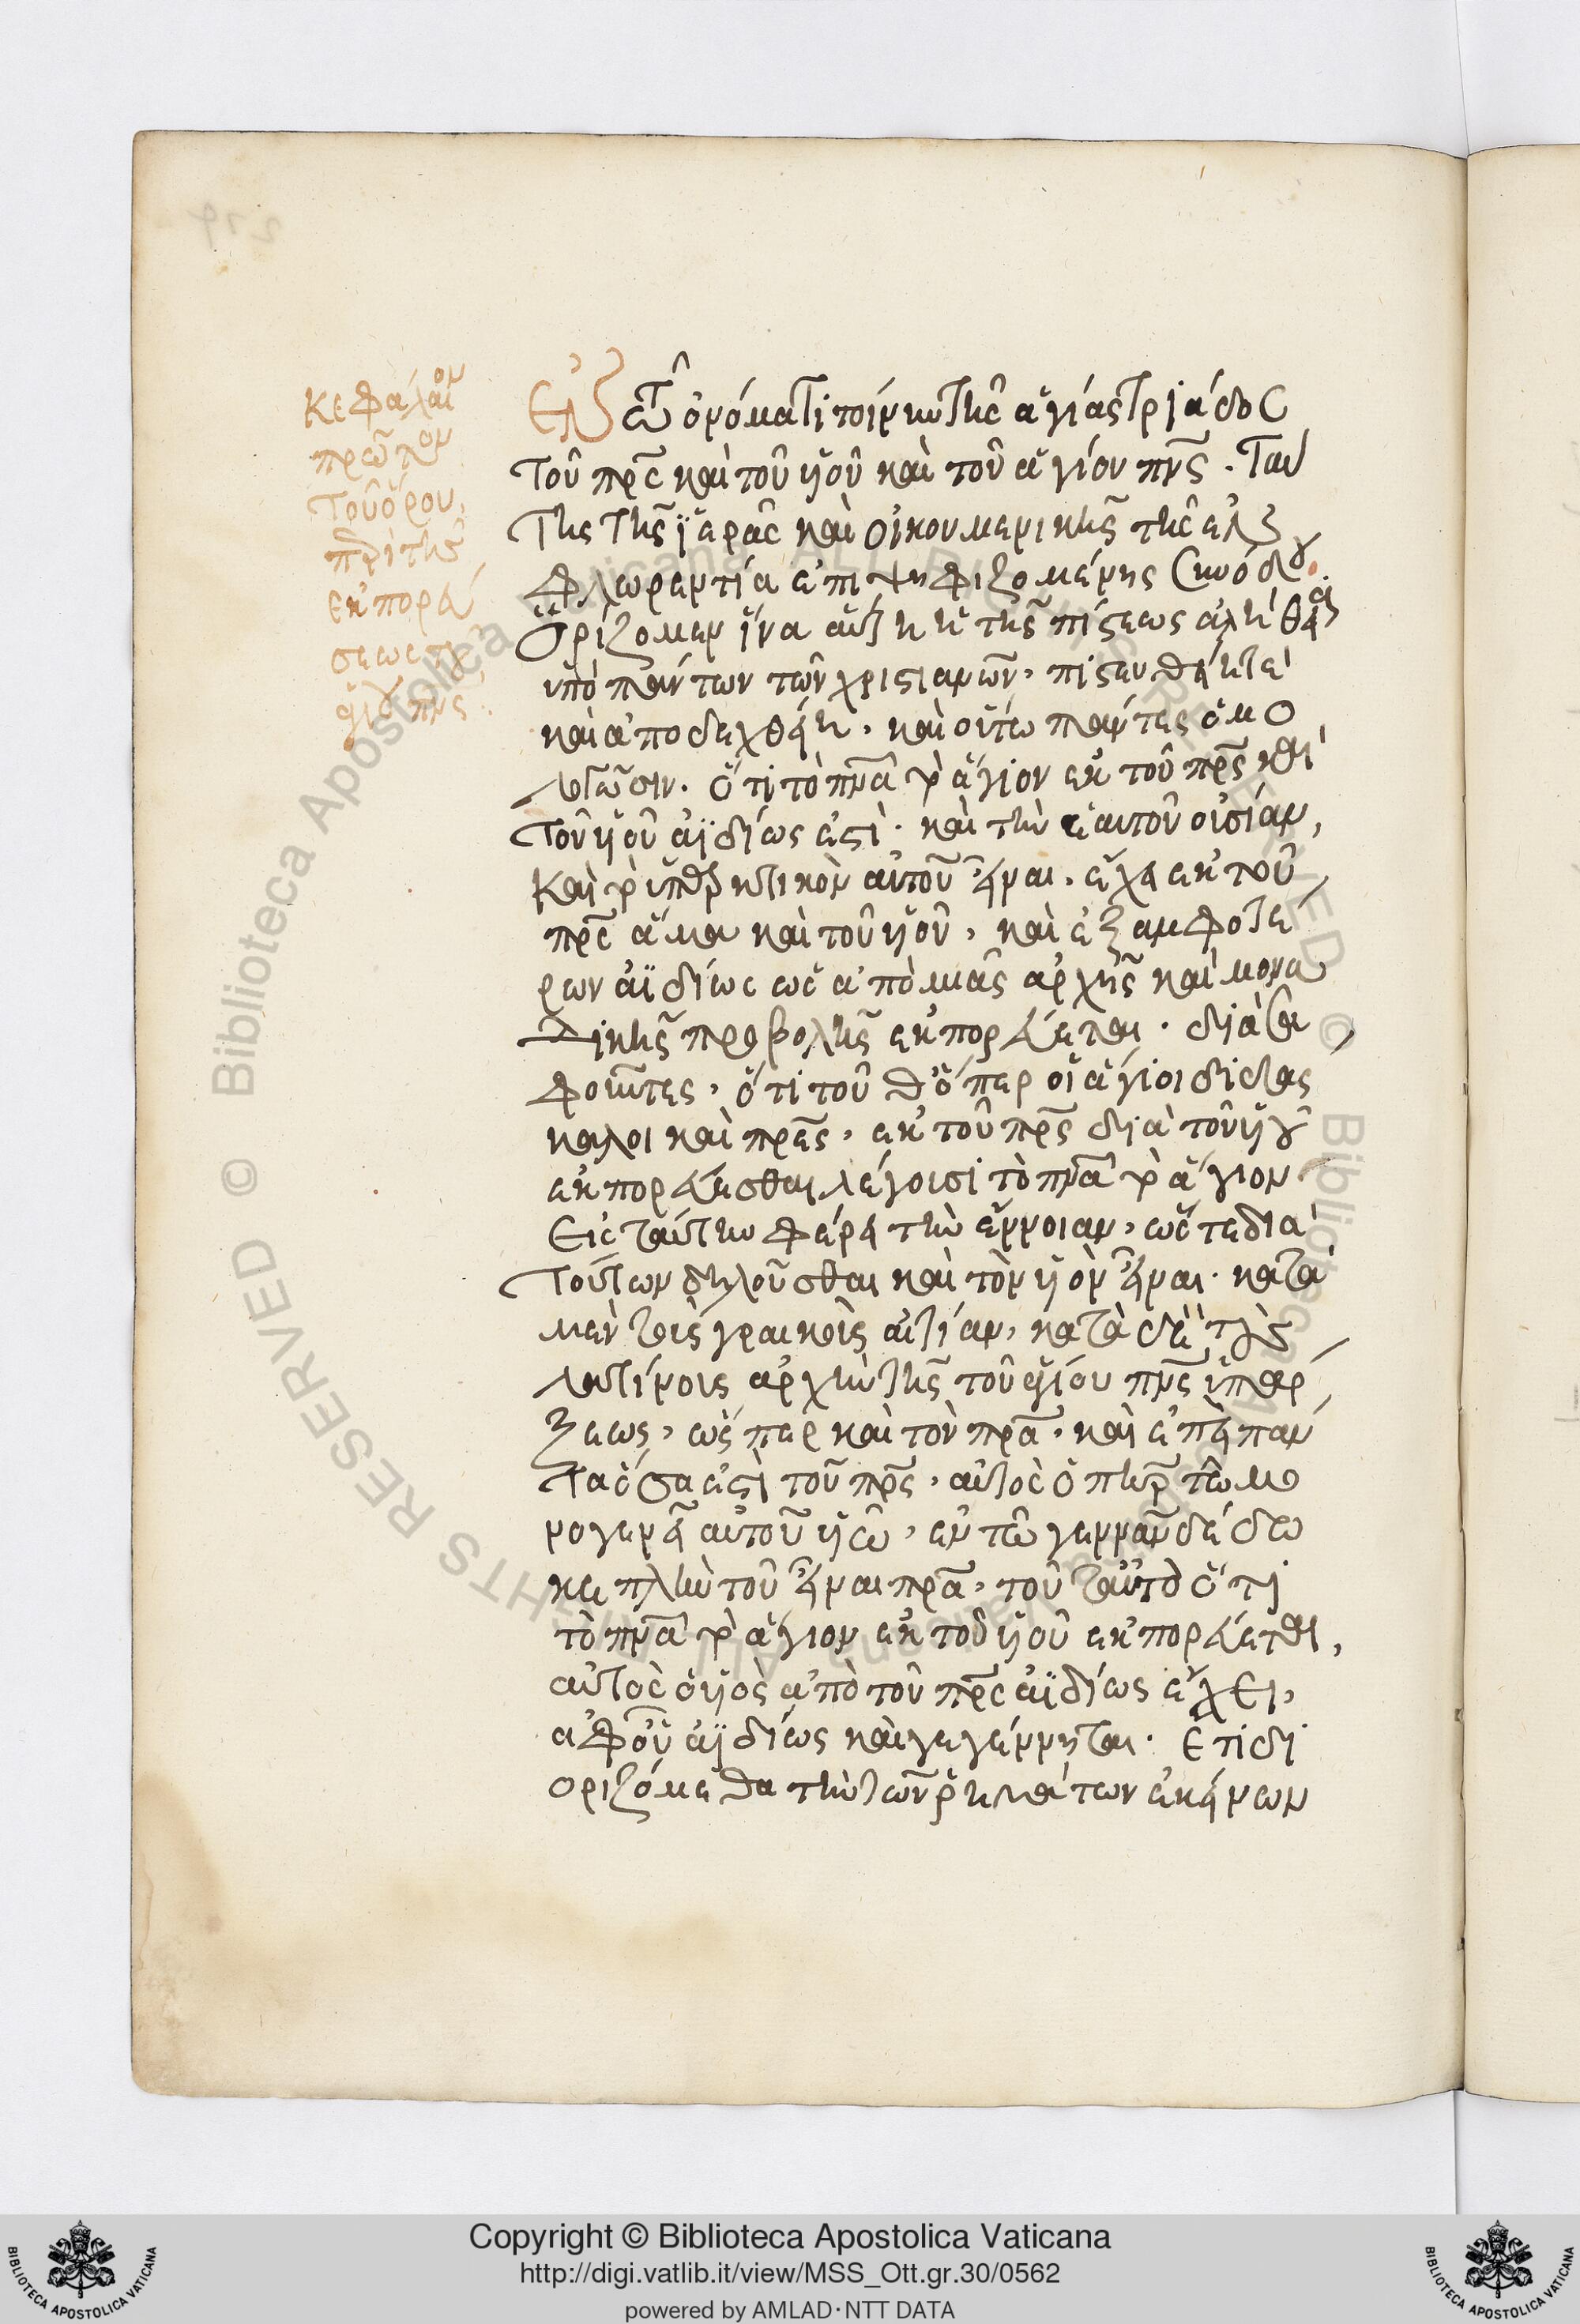 Κεφάλαιον
πρῶτον
τοῦ ὅρου
περὶ τῆς
ἐκπορεύ
σεως τοῦ
ἁγίου πνς
Ἐν τῶ ὀνόματι τοίνυν τῆς ἁγίας τριάδος
τοῦ πρς καὶ τοῦ υἱοῦ καὶ τοῦ ἁγίου πνς. ταύ
της τῆς ἱερᾶς καὶ οἰκουμενικῆς τῆς ἐν
φλωρεντία ἐπιψηφιζομένης συνόδου.
Ὁρίζομεν ἵνα αὕτη ἡ τῆς πίστεως ἀλήθεια
ὑπὸ πάντων τῶν χριστιανῶν, πιστευθείη τε
καὶ ἀποδεχθείη, καὶ οὕτω πάντες ὁμο
λογῶσιν. ὅτι τὸ πνα τὸ ἅγιον ἐκ τοῦ πρς καὶ
τοῦ υἱοῦ ἀϊδίως ἐστί. καὶ τὴν ἑαυτοῦ οὐσίαν,
καὶ τὸ ὑπαρκτικὸν αὐτοῦ εἶναι, ἔχει ἐκ τοῦ
πρς ἅμα καὶ τοῦ υἱοῦ, καὶ ἐξ ἀμφοτέ
ρων ἀϊδίως ὡς ἀπὸ μιᾶς ἀρχῆς καὶ μονα
δικῆς προβολῆς ἐκπορεύεται. διασα
φοῦντες, ὅτι τοῦθ' ὅπερ οἱ ἅγιοι διδάς
καλοι καὶ πρες, ἐκ τοῦ πρς διὰ τοῦ υἱοῦ
ἐκπορεύεσθαι λέγουσι τὸ πνα τὸ ἅγιον
εἰς ταύτην φέρει τὴν ἔννοιαν, ὥστε διὰ
τούτων δηλοῦσθαι καὶ τὸν υἱὸν εἶναι. κατὰ
μὲν τοὺς γραικοὺς αἰτίαν, κατὰ δὲ τοὺς
λατίνους ἀρχὴν τῆς τοῦ ἁγίου πνς ὑπάρ
ξεως, ὥσπερ καὶ τὸν πρα. καὶ ἐπεὶ πάν
τα ὅσα ἐστὶ τοῦ πρς, αὐτὸς ὁ πηρ τῶ μο
νογενεῖ αὐτοῦ υἱῶ, ἐν τῶ γεννᾶν δέδω
κε πλὴν τοῦ εἶναι πρα, τοῦτ' αὐτὸ ὅτι
τὸ πνα τὸ ἅγιον ἐκ τοῦ υἱοῦ ἐκπορεύεται,
αὐτὸς ὁ υἱὸς ἀπὸ τοῦ πρς ἀϊδίως ἔχει,
ἀφοῦ ἀϊδίως καὶ γεγέννηται. Ἔτι δι
οριζόμεθα τὴν τῶν ῥημάτων ἐκείνων
Copyright © Biblioteca Apostolica Vaticana
http://digi.vatlib.it/view/MSS_Ott.gr.30/0562
powered by AMLAD·NTT DATA
BIBLIOTECA APOSTOLICA VATICANA
BIBLIOTECA APOSTOLICA VATICANA